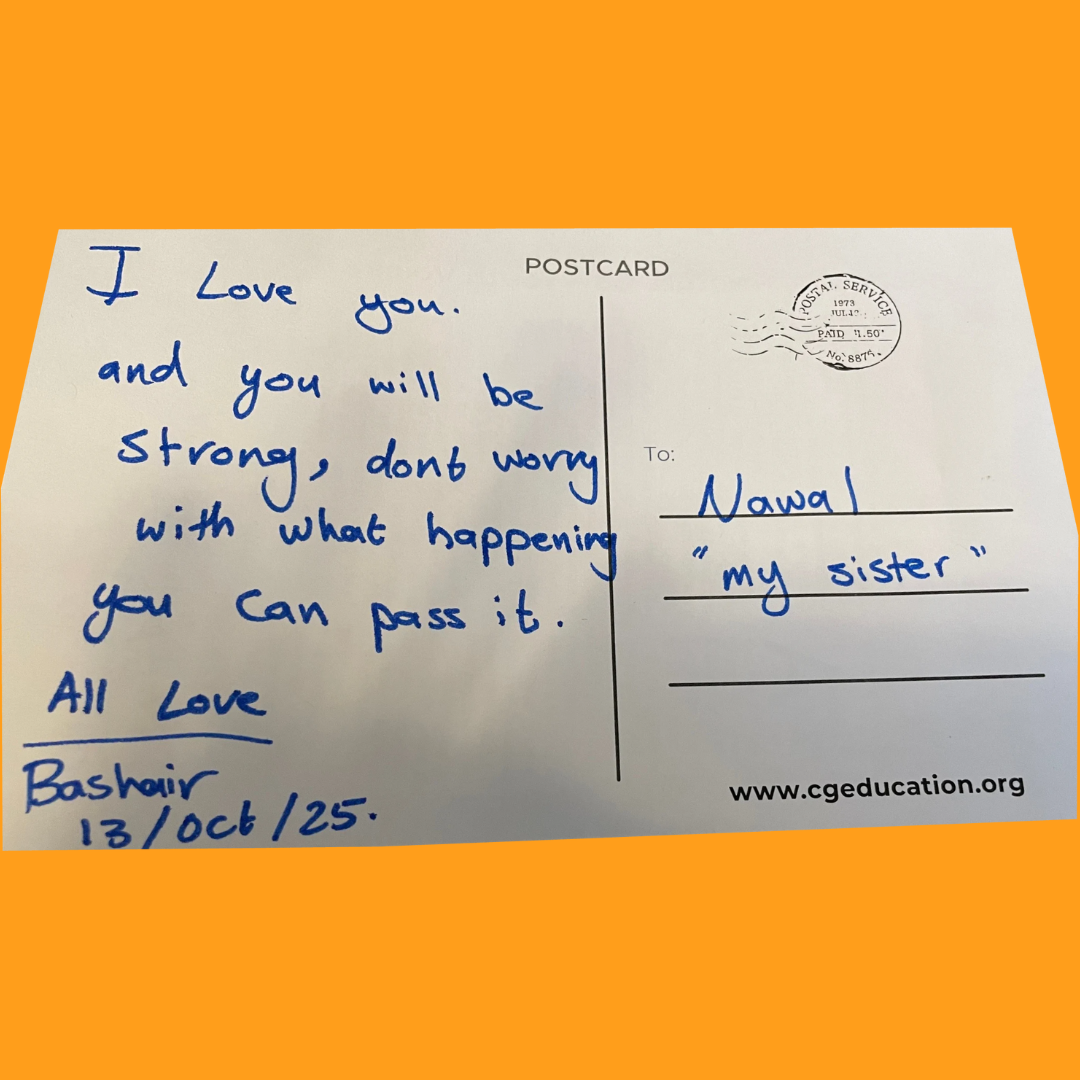 I Love you.
and you will be
strong, dont worry
with what happening
you can pass it.
All Love
Bashair
13/Oct/25.
POSTCARD
POSTAL SERVICE
1973
PAID
No. 887
To:
Nawal
"my sister"
www.cgeducation.org